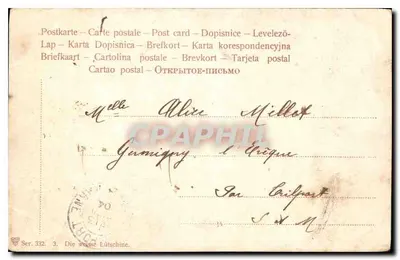 Postkarte – Carte postale – Post card – Dopisnice – Levelező-
Lap – Karta Dopisnica – Brefkort – Karta korespondencyjna
Briefkaart – Cartolina postale – Brevkort – Tarjeta postal
Cartao postal – ОТКРЫТОЕ-ПИСЬМО
Melle Alice Millot
CPARAMA
Germigny l'Evêque
Par Trilport
S & M
Ser. 332. 3. Die Lütschine.